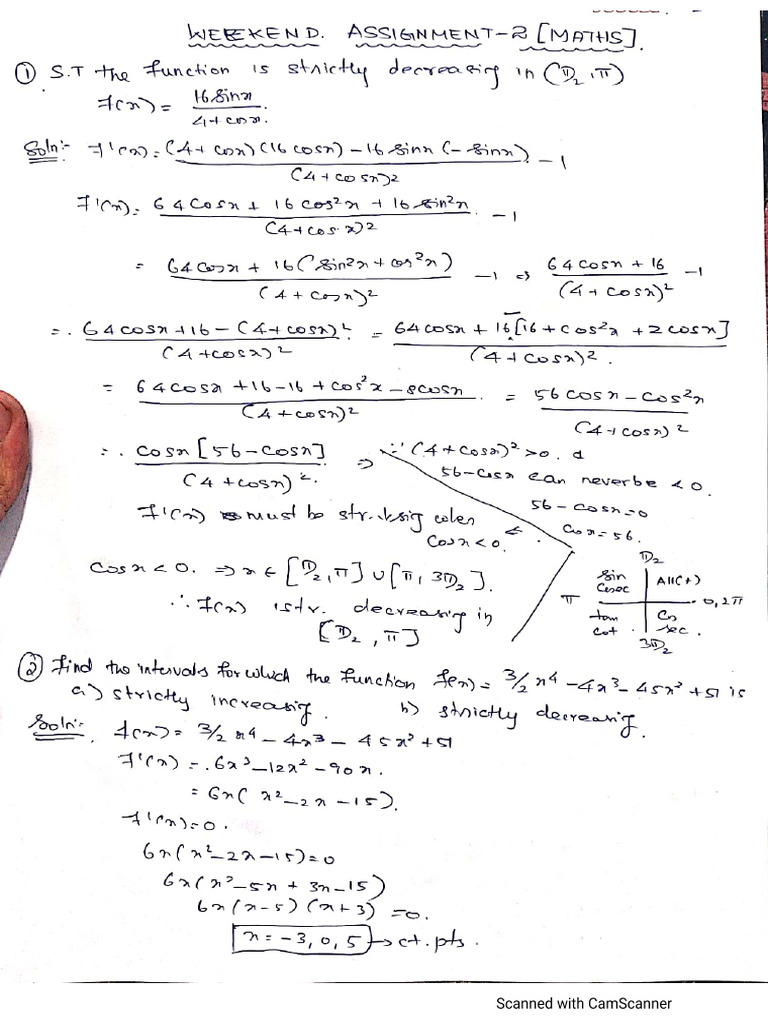 WEEKEND. ASSIGNMENT-2 [MATHS].
① S.T the function is strictly decreasing in (π/2, π)
f(x) = 16 sinx / 4+cosx.
Soln:- f'(x) = (4+cosx)(16 cosx) - 16 sinx (-sinx) / (4+cosx)² - 1
f'(x) = 64 cosx + 16 cos²x + 16 sin²x / (4+cos x)² - 1
= 64 cosx + 16 (sin²x + cos²x) / (4+cosx)² - 1 ⇒ 64 cosx + 16 / (4+cosx)² - 1
= 64 cosx + 16 - (4+cosx)² / (4+cosx)² = 64 cosx + 16 - [16 + cos²x + 2 cosx] / (4+cosx)².
= 64 cosx + 16 - 16 + cos²x - 8cosx / (4+cosx)² = 56 cosx - cos²x / (4+cosx)²
= cosx [56 - cosx] / (4+cosx)² ⇒ ∵ (4+cosx)² > 0. &
56 - cosx can never be < 0.
56 - cosx = 0
cosx = 56.
f'(x) must be when
cosx < 0.
cosx < 0. ⇒ x ∈ [π/2, π] ∪ [π, 3π/2].
∴ f(x) is str. decreasing in
[π/2, π]
π/2
sin cosec All(+)
π 0, 2π
tan cot cos sec.
3π/2
② Find the intervals for which the function f(x) = 3/2 x⁴ - 4x³ - 45x² + 51 is
a) strictly increasing. b) strictly decreasing.
Soln:- f(x) = 3/2 x⁴ - 4x³ - 45x² + 51
f'(x) = 6x³ - 12x² - 90x.
= 6x( x² - 2x - 15).
f'(x) = 0.
6x(x² - 2x - 15) = 0
6x(x² - 5x + 3x - 15)
6x(x - 5)(x + 3) = 0.
x = -3, 0, 5 → ct. pts.
Scanned with CamScanner